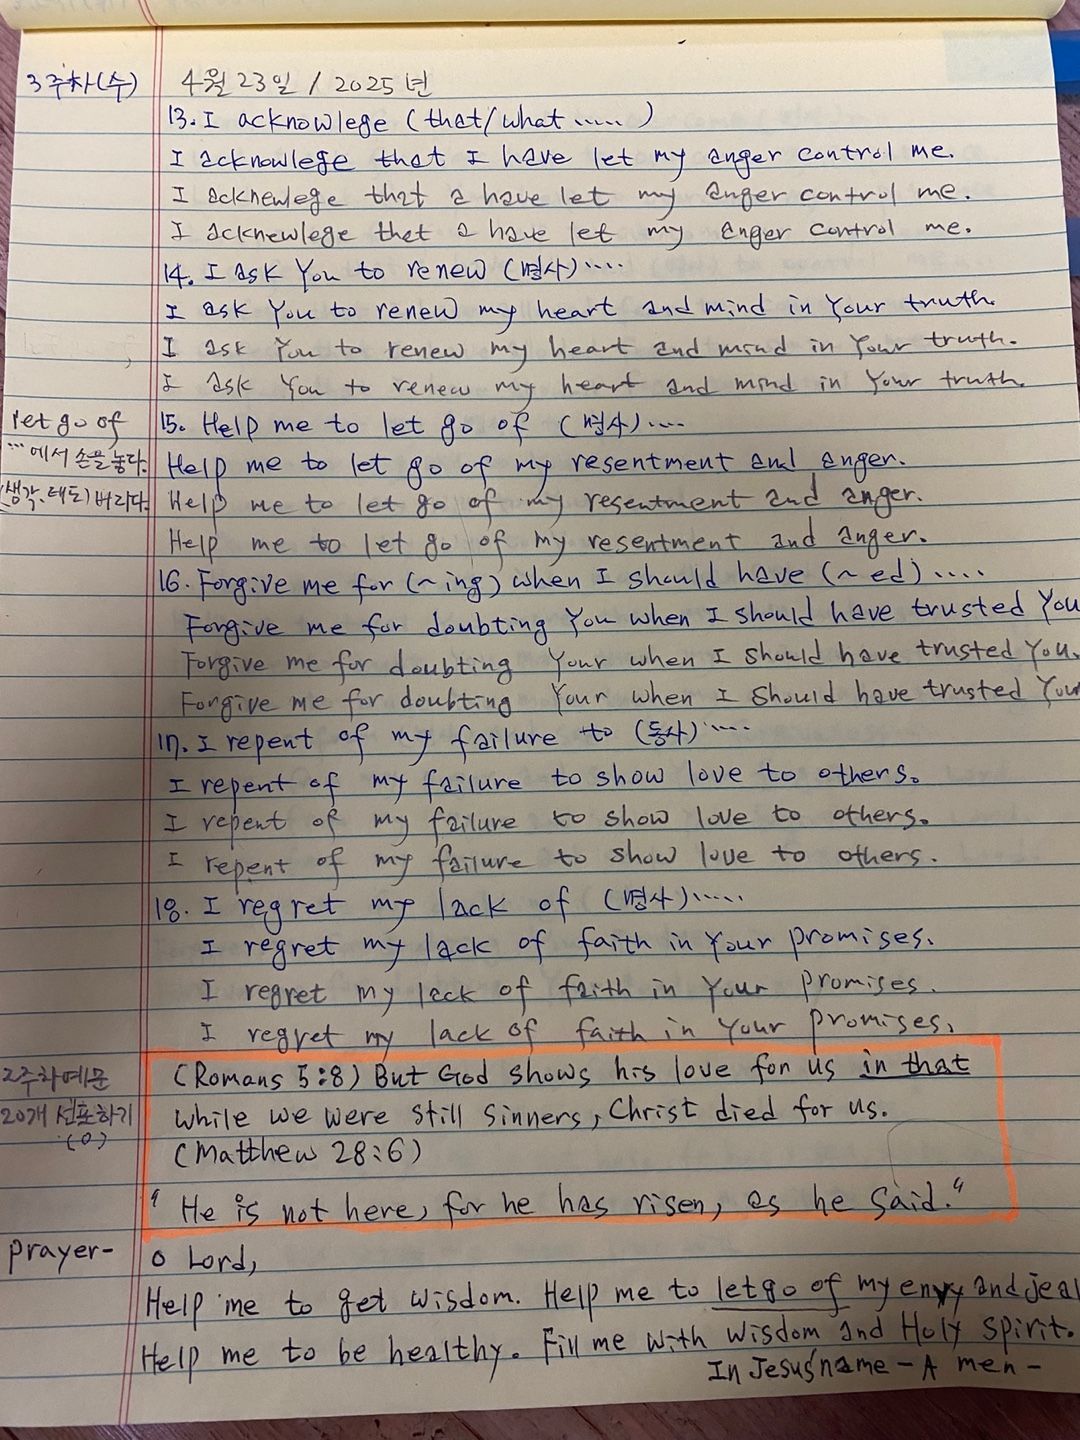 3주차(수) 4월 23일 / 2025년
13. I acknowlege (that/what ..... )
I acknowlege that I have let my anger control me.
I acknewlege that a have let my anger control me.
I acknewlege thet a have let my anger control me.
14. I ask You to renew (명사)....
I ask You to renew my heart and mind in Your truth.
I ask You to renew my heart and mind in Your truth.
I ask You to renew my heart and mind in Your truth.
let go of 15. Help me to let go of (명사)....
...에서 손을 놓다. Help me to let go of my resentment and anger.
(생각, 태도) 버리다. Help me to let go of my resentment and anger.
Help me to let go of my resentment and anger.
16. Forgive me for (~ing) when I should have (~ed)....
Forgive me for doubting You when I should have trusted You
Forgive me for doubting Your when I should have trusted You.
Forgive me for doubting Your when I should have trusted Your
17. I repent of my failure to (동사)....
I repent of my failure to show love to others.
I repent of my failure to show love to others.
I repent of my failure to show love to others.
18. I regret my lack of (명사).....
I regret my lack of faith in Your promises.
I regret my lack of faith in Your promises.
I regret my lack of faith in Your promises.
2주차예문 (Romans 5:8) But God shows his love for us in that
20개 선포하기 while we were still sinners, Christ died for us.
(0) (Matthew 28:6)
" He is not here, for he has risen, as he said."
prayer- O Lord,
Help me to get wisdom. Help me to let go of my envy and jeal
Help me to be healthy. Fill me with wisdom and Holy Spirit.
In Jesus' name - A men -